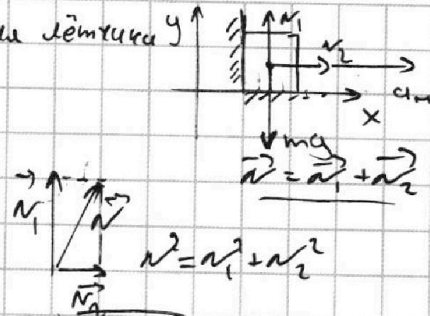 лётчика y
N₁
N₂
aₙ
x
mg
N⃗ = N⃗₁ + N⃗₂
N⃗₁
N⃗
N² = N₁² + N₂²
N⃗₂